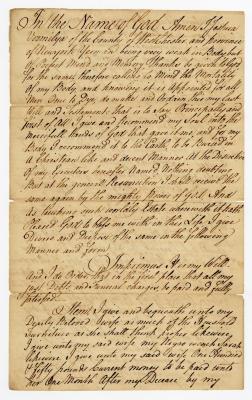 In the Name of God Amen I Joshua
of the County of Westchester and province
of Newyork Gen being very weak in Body but
of Perfect Mind and Memory Thanks be given to God
for the same therefore calling to Mind the Mortality
of my Body, and knowing it is appointed for all
Men Once to Dye, do make and Ordain this my Last
Will and Testament that is to Say Principally and
first of all I give and Recommend my Soul into the
mercifull hands of God that gave it me, and for my
Body I recommend it to the Earth, to be Buried in
a Christian like and decent Manner At the discretion
of my Executors herafter Named Nothing doubting
But at the general Resurrection I shall receive the
same again by the mighty Power of God. And
As touching such worldly Estate wherewith it hath
Pleased God to bless me with in this Life I give
Devise and Dispose of the same in the following
Manner and form
Imprimis It is my Will
And I do Order that in the first place that all my
Just Debts and Funeral charges be paid and fully
satisfied
Item I give and bequeath unto my
Dearly Beloved wife as much of the Household
furniture as she shall think proper likewise
I give unto my said wife my Negro wench Sarah
likewise I give unto my said wife One Hundred
& fifty pounds Current money to be paid unto
her One Month After my Decease by my